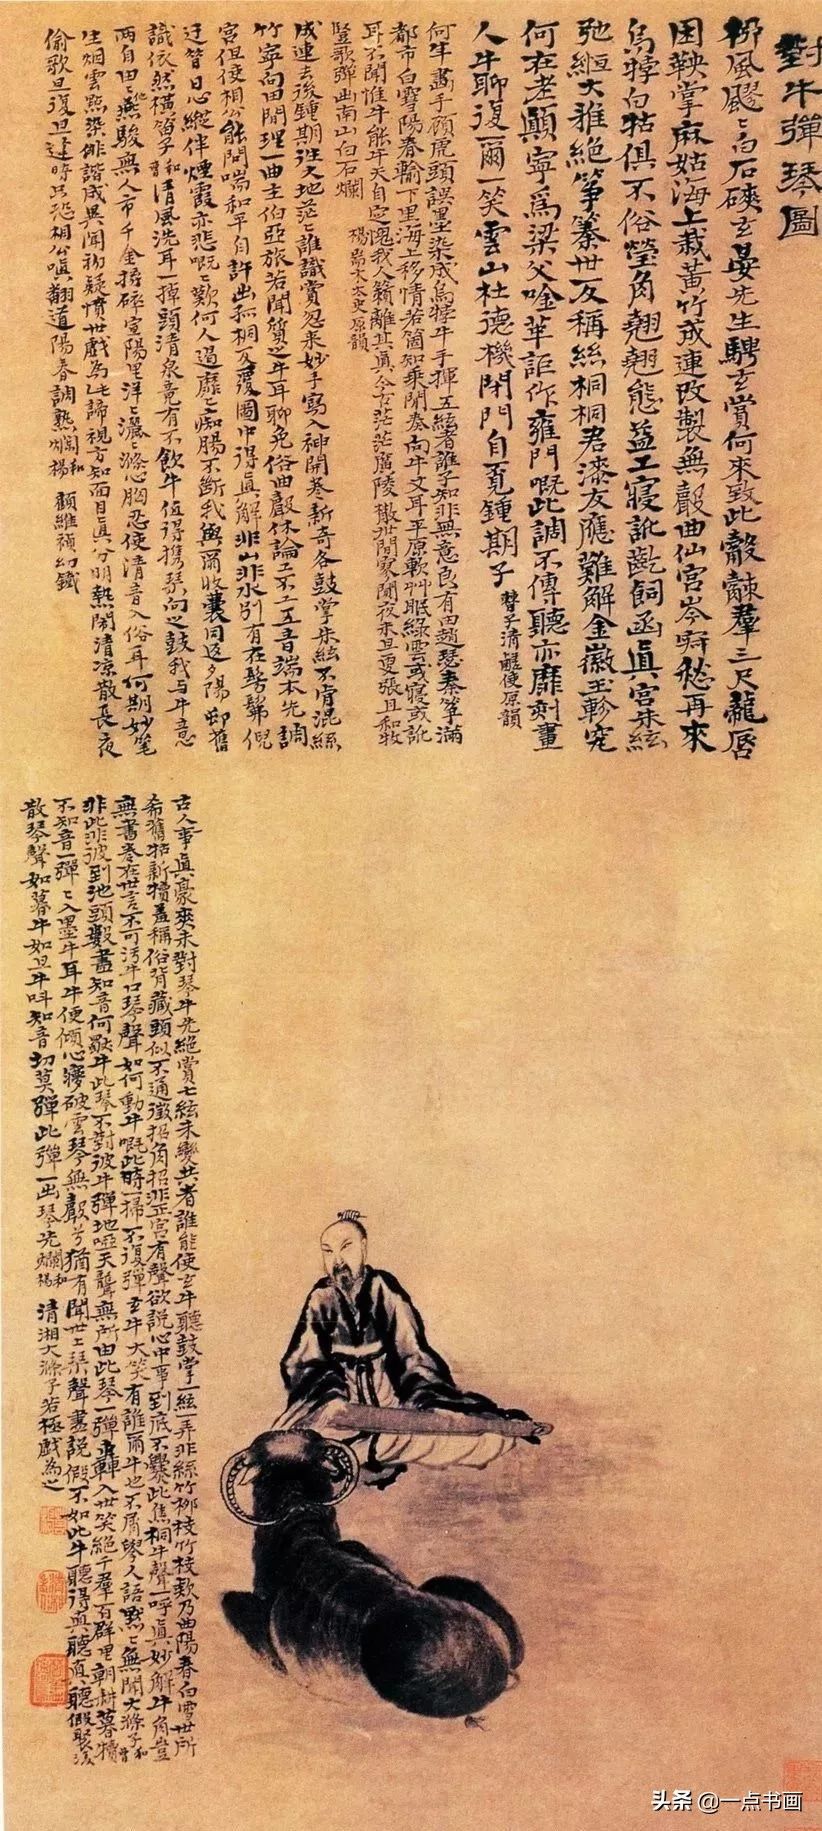 對牛彈琴圖
柳風颼颼白石磢玄晏先生騁玄賞何來致此觳觫羣三尺龍唇
困鞅掌麻姑海上栽黃竹成連改製無聲曲仙宮岑時愁再來
烏牸白牯俱不俗瑩角翹翹態益工寢訛齕飼函真宮朱絃
弛縆大雅絕箏蓁世反稱絲桐桐君漆友應難解金徽玉軫宛
何在老顛寧為梁父唫羊詎作雍門嘅此調不傳聽亦靡刻畫
人牛聊復爾一笑雲山杜德機閉門自覓鍾期子 聲子清鹺使原韻
何年畫手顧虎頭誤墨染成烏牸牛手揮五絃者誰子知非無意良有田趙瑟秦箏滿
都市白雪陽春輸下里海上移情若箇知乘閒奏向牛文耳平原軟艸眠綠雲或寢或訛
耳不聞惟牛能牛天自定愧我人籟離其真今古茫茫廣陵散世間寥闃夜未旦更張且和牧
豎歌彈曲南山白石爛 楊耑木太史原韻
成連去後鍾期往大地茫茫誰識賞忽來妙手寫入神開卷新奇各鼓掌朱絃不肯混絲
竹寧向田間理一曲主伯亞旅若聞質之牛耳聊免俗曲聲休論工不工五音端本先調
宮但使相公能問喘和平自許出孤桐反覆圖中得真解非山非水別有在髣髴倪
迂筆日心縱伴煙霞亦悲嘅嘅歎何人過靡靡癡腸不斷我與爾收囊同返夕陽邨舊
識依然橫笛子 和音 清風洗耳一掉頭清泉竟有不飲牛值得攜琴向之鼓我與牛意
兩自由燕駿無人市千金摔碎宣陽里洋洋灑灑滌心胸忍使清音入俗耳何期妙筆
生烟雲點染俳諧成異聞初疑憤世戲為此諦視方知面目真分明熱鬧清凉散長夜
偷歌旦復旦逢時只恐相公嗔翻道陽春調熟爛 和楊 顧維禎幻鐵
古人事真豪爽未對琴牛先絕賞七絃未變共者誰能使玄牛聽鼓掌一絃一弄非絲竹柳枝竹枝欸乃曲陽春白雪世所
希舊牯新犢羞稱俗背藏頭似不通徵招角招非正宮有聲欲說心中事到底不爨此焦桐牛聲一呼真妙解牛角豈
無書卷在世言不可污牛口琴聲如何動牛嘅此時一掃不復彈玄牛大笑有誰爾牛也不屑學人語默默無聞大滌子 和曹
非此非彼到池頭數盡知音何獨牛此琴不對彼牛彈地啞天聾無所由此琴一彈轟轟入世笑絕千羣百群里朝耕暮犢
不知音一彈彈入墨牛耳牛便傾心夢破雲琴無聲兮猶有聞世上琴聲盡說假不如此牛聽得真聽真聽假聚復
散琴聲如暮牛如旦牛叫知音切莫彈此彈一出琴先爛 和楊 清湘大滌子若極戲為之
头条 @一点书画